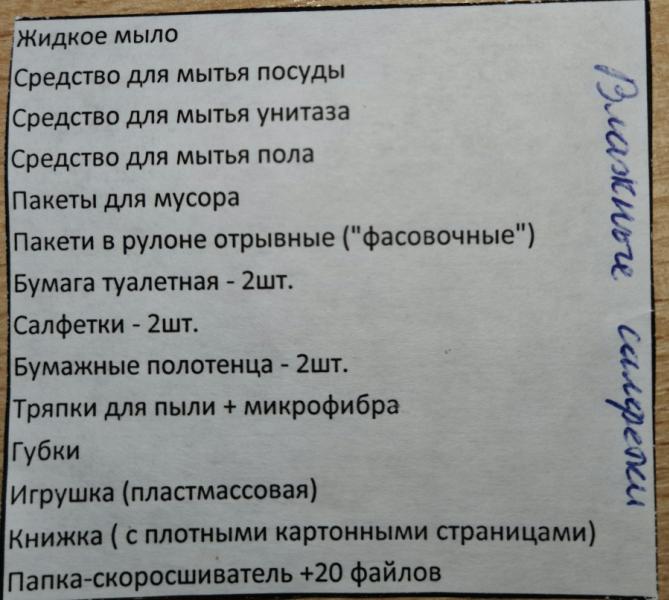 Жидкое мыло
Средство для мытья посуды
Средство для мытья унитаза
Средство для мытья пола
Пакеты для мусора
Пакети в рулоне отрывные ("фасовочные")
Бумага туалетная - 2шт.
Салфетки - 2шт.
Бумажные полотенца - 2шт.
Тряпки для пыли + микрофибра
Губки
Игрушка (пластмассовая)
Книжка ( с плотными картонными страницами)
Папка-скоросшиватель +20 файлов
Влажные салфетки